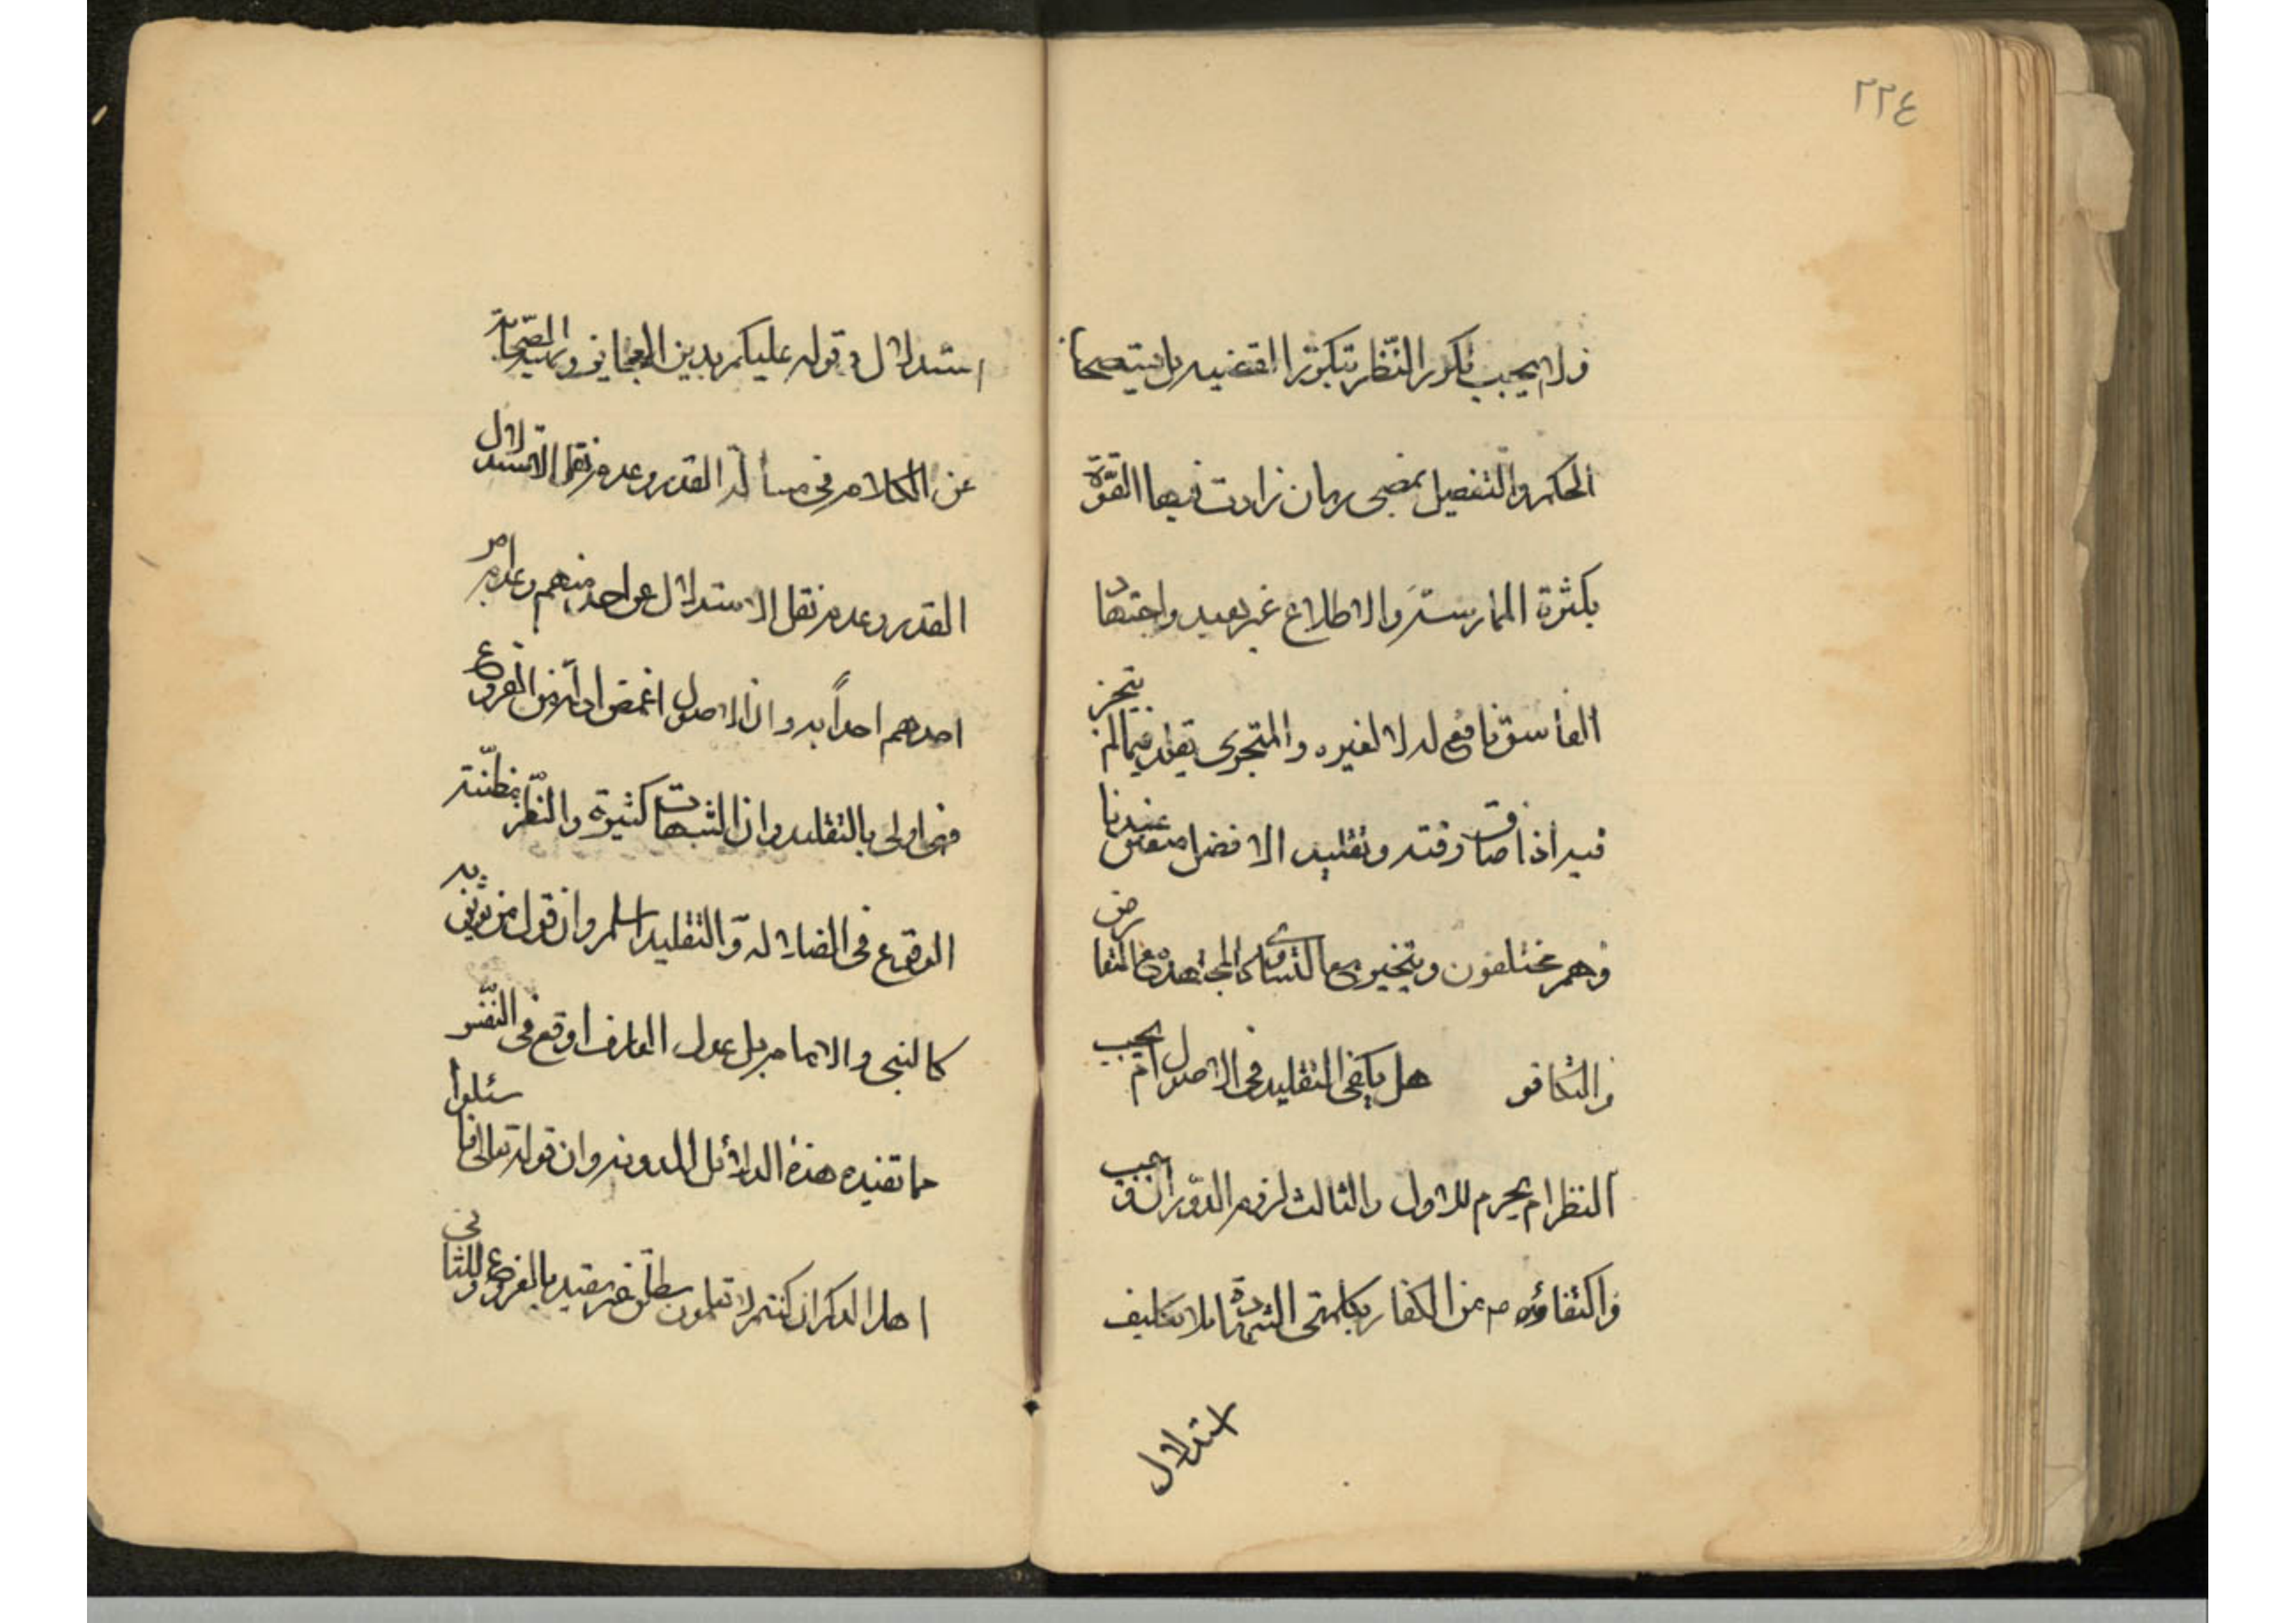 ٢٢٤
ولا يجب تكرر النظر بتكرر القضيه بل يستصحا
الحكم والتفصيل بمضي زمان زادت فيها القوّة
بكثرة الممارسة والاطلاع غير بعيد واجتهاد
الفاسق نافع له لا لغيره والمتجزى يقلد فيما لم يتجز
فيه اذا ضاق وقته وتقليد الافضل متعين عندنا
وهم مختلفون ويتخير مع التساوى كالمجتهد مع التعارض
والتكافو هل يكفى التقليد فى الاصول ام يجب
النظر ام يحرم للاول والثالث لزوم الدور ان وجب
واكتفاؤه ص عن الكفار بكلمتى الشهادة بلا تكليف
استدلال
استدلال وقوله عليكم بدين العجايز ونهيه الصحابة
عن الكلام فى مسألة القدر وعدم نقل الاستدلال
القدر وعدم نقل الاستدلال عن احد منهم وعدم امر
احدهم احداً به وان الاصول اغمض ادلة من الفروع
فهى اولى بالتقليد وان الشبهات كثيرة والنظر مظنّة
الوقوع فى الضلالة والتقليد اسلم وان قول من يوثق به
كالنبي والامام بل عدول العارف اوقع فى النّفس
مما تفيده هذه الدلائل المدونه وان قوله تعالى فاسئلوا
اهل الذكر ان كنتم لا تعلمون مطلق غير مقيد بالفروع وللثانى